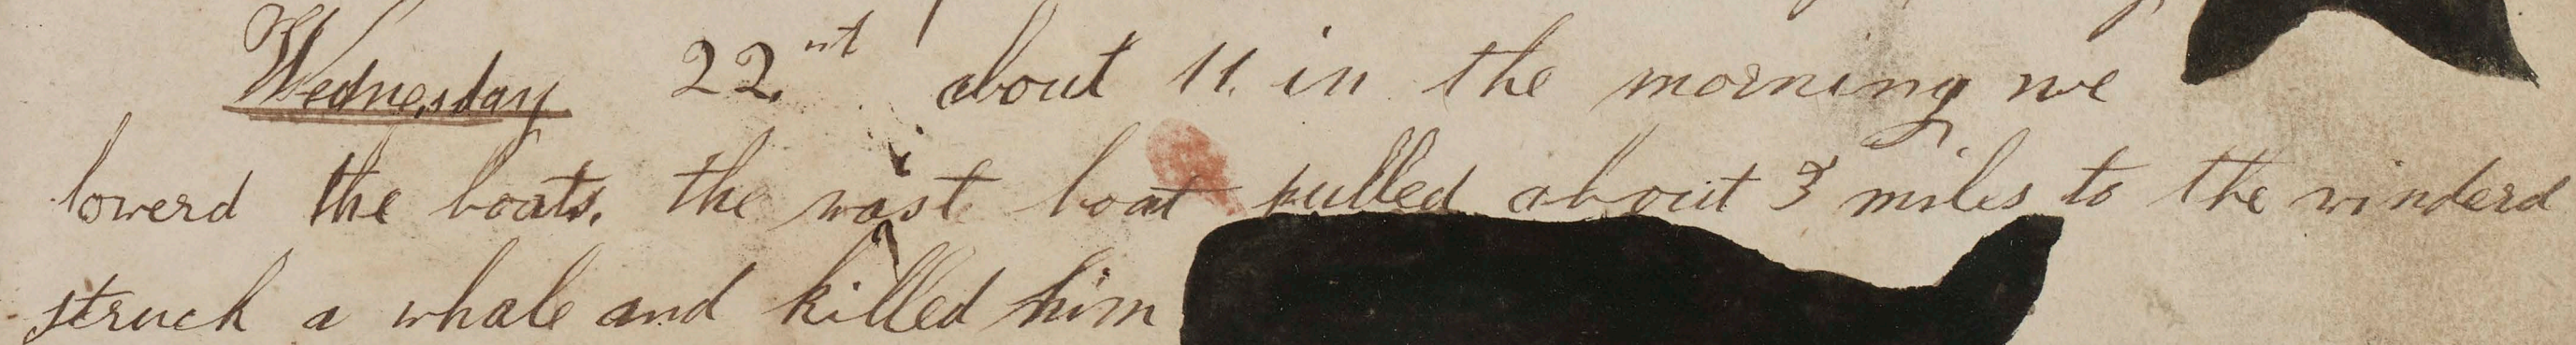 Wednesday 22.nt about 11. in the morning we
lowerd the boats. the wast boat pulled about 3 miles to the winderd
struck a whale and killed him